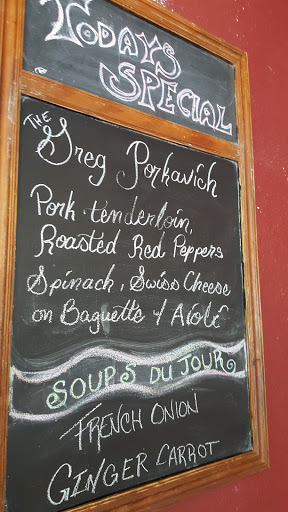 TODAYS
SPECIAL
THE
Greg Porkavich
Pork tenderloin,
Roasted Red Peppers
Spinach, Swiss Cheese
on Baguette & Aioli
SOUPS DU JOUR
FRENCH ONION
GINGER CARROT